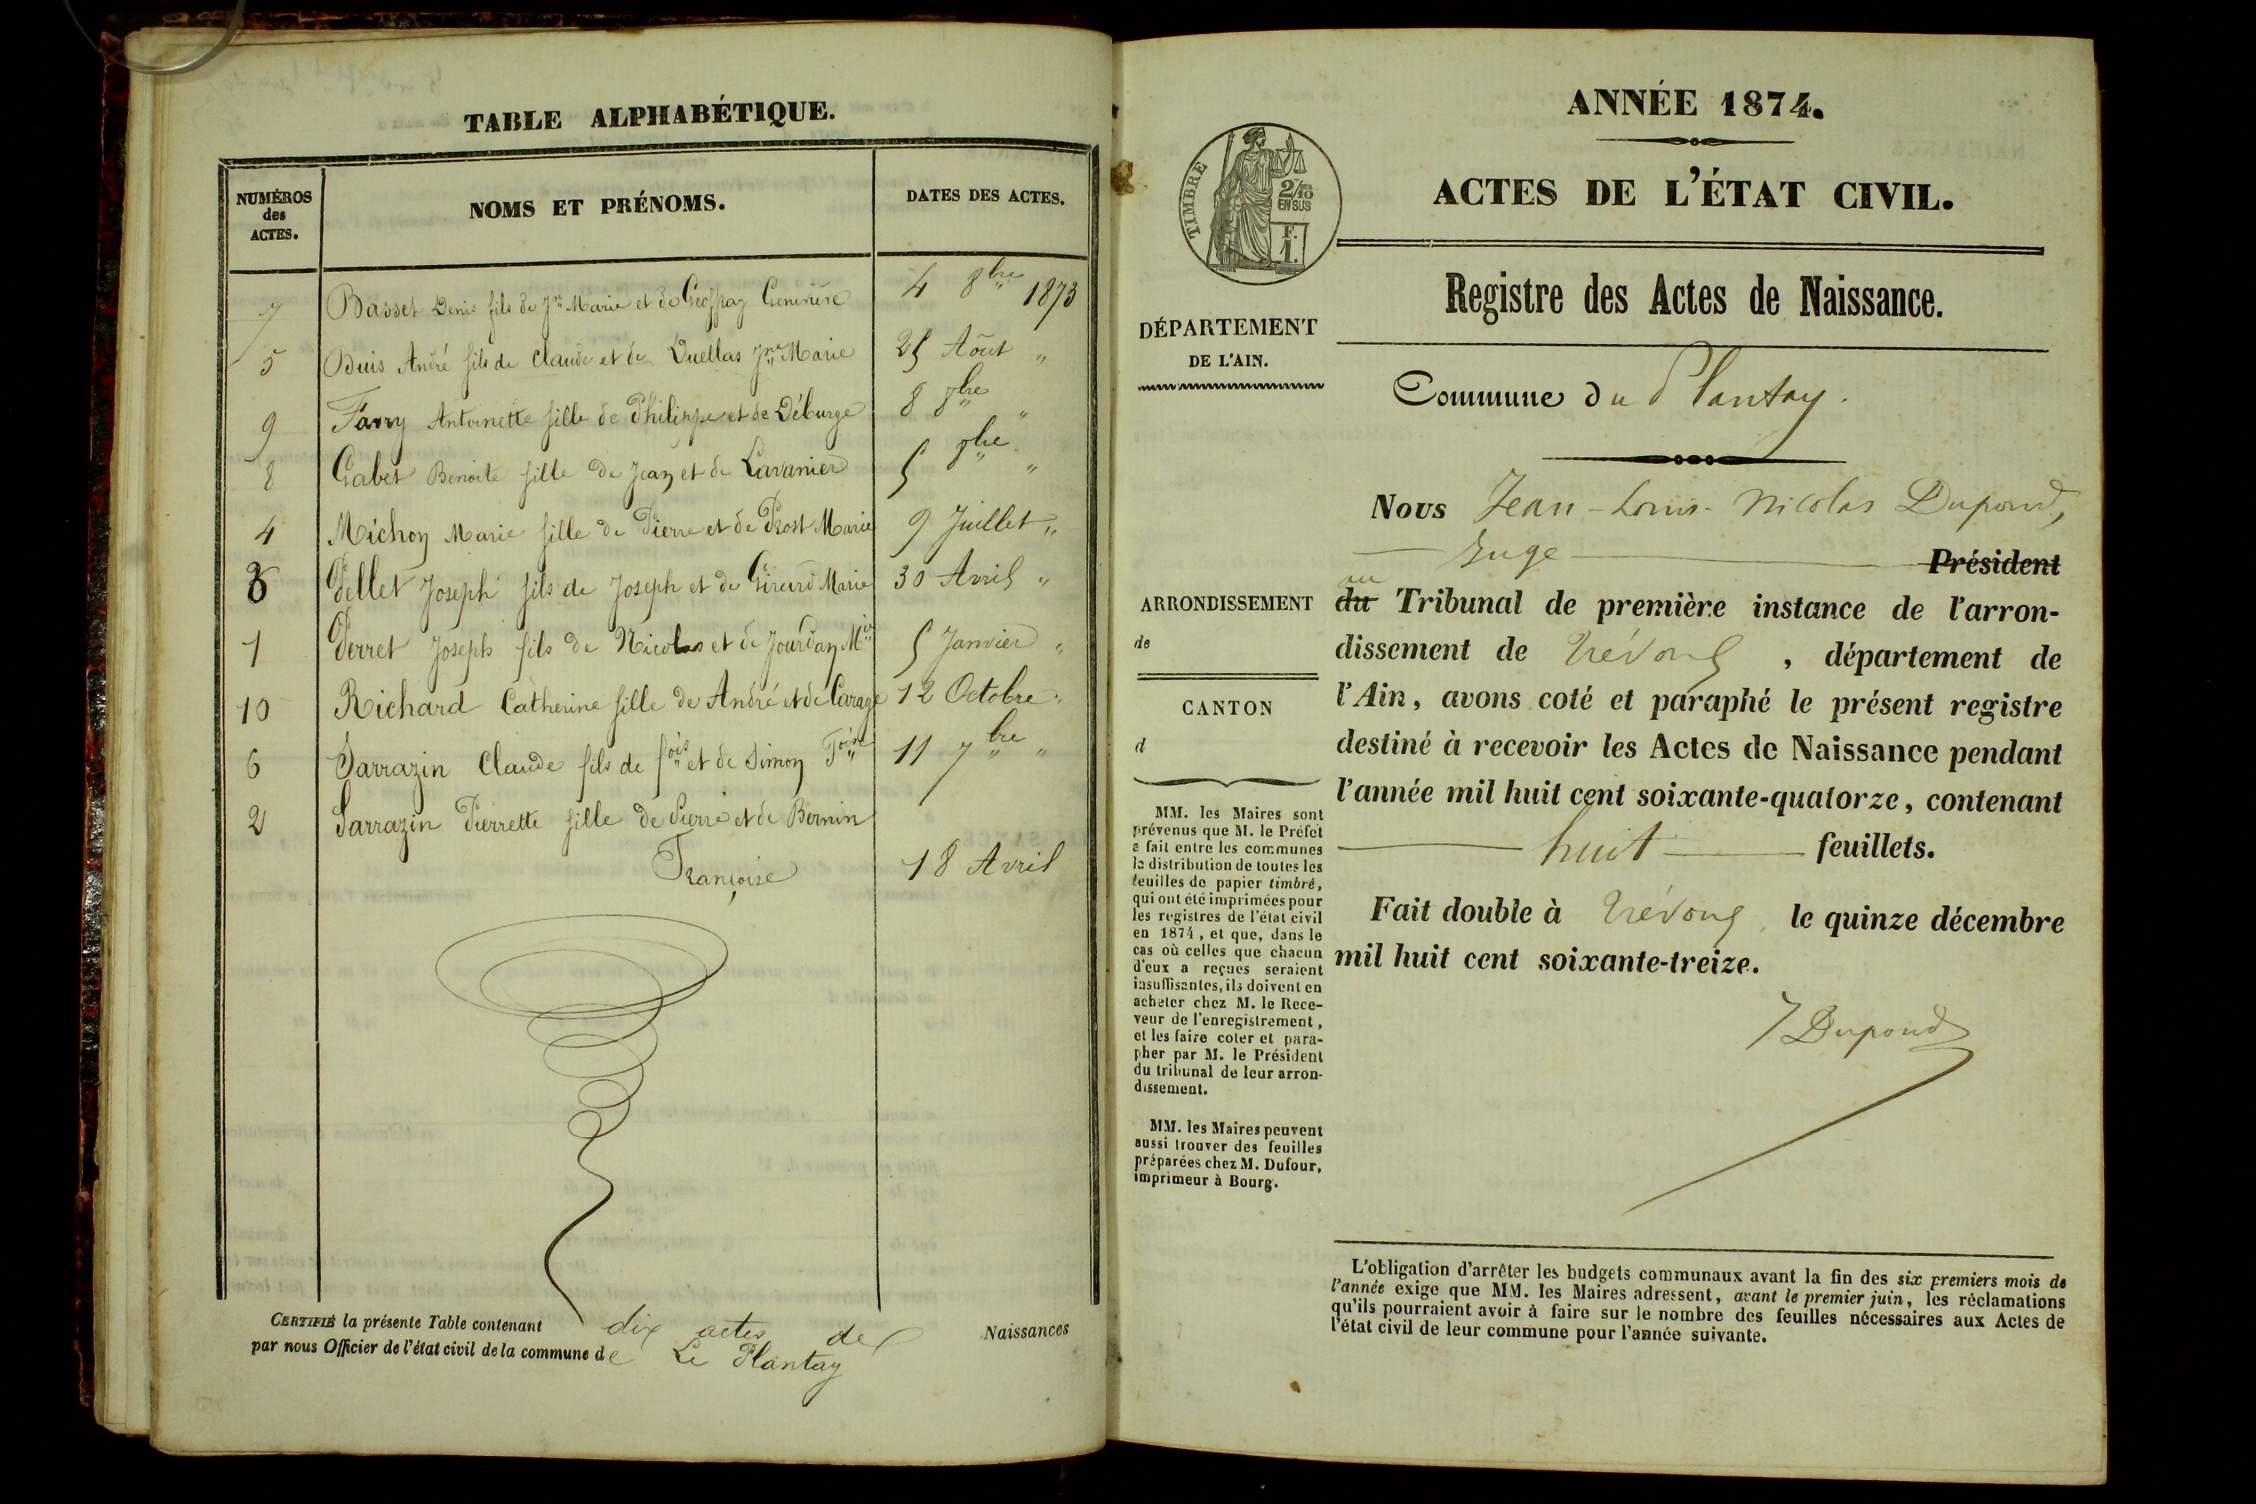 TABLE ALPHABÉTIQUE.
NUMÉROS des ACTES.
NOMS ET PRÉNOMS.
DATES DES ACTES.
7 Basset Denis fils de Jn Marie et de Geoffray Geneviève 4 8bre 1873
5 Buis André fils de Claude et de Duellas Jne Marie 25 Août "
9 Farry Antoinette fille de Philippe et de Déburge 8 8bre "
8 Gabet Benoite fille de Jean et de Lavanier 5 8bre "
4 Michon Marie fille de Pierre et de Prost Marie 9 Juillet "
3 Pellet Joseph fils de Joseph et de Girard Marie 30 Avril "
1 Perret Joseph fils de Nicolas et de Jourdan Mie 5 Janvier "
10 Richard Catherine fille de André et de Carage 12 Octobre "
6 Sarrazin Claude fils de fois et de Simon Foise 11 7bre "
2 Sarrazin Pierrette fille de Pierre et de Bernin
Françoise 18 Avril
CERTIFIÉ la présente Table contenant dix actes de Naissances
par nous Officier de l'état civil de la commune de Le Plantay
ANNÉE 1874.
ACTES DE L'ÉTAT CIVIL.
TIMBRE
2/10
EN SUS
F.
1.
Registre des Actes de Naissance.
DÉPARTEMENT
DE L'AIN.
Commune du Plantay.
Nous Jean-Louis-Nicolas Dupond,
Juge Président
au du Tribunal de première instance de l'arron-
dissement de Trévoux, département de
l'Ain, avons coté et paraphé le présent registre
destiné à recevoir les Actes de Naissance pendant
l'année mil huit cent soixante-quatorze, contenant
huit feuillets.
Fait double à Trévoux, le quinze décembre
mil huit cent soixante-treize.
J Dupond
ARRONDISSEMENT
de
CANTON
d
MM. les Maires sont
prévenus que M. le Préfet
a fait entre les communes
la distribution de toutes les
feuilles de papier timbré,
qui ont été imprimées pour
les registres de l'état civil
en 1874, et que, dans le
cas où celles que chacun
d'eux a reçues seraient
insuffisantes, ils doivent en
acheter chez M. le Rece-
veur de l'enregistrement,
et les faire coter et para-
pher par M. le Président
du tribunal de leur arron-
dissement.
MM. les Maires peuvent
aussi trouver des feuilles
préparées chez M. Dufour,
imprimeur à Bourg.
L'obligation d'arrêter les budgets communaux avant la fin des six premiers mois de
l'année exige que MM. les Maires adressent, avant le premier juin, les réclamations
qu'ils pourraient avoir à faire sur le nombre des feuilles nécessaires aux Actes de
l'état civil de leur commune pour l'année suivante.